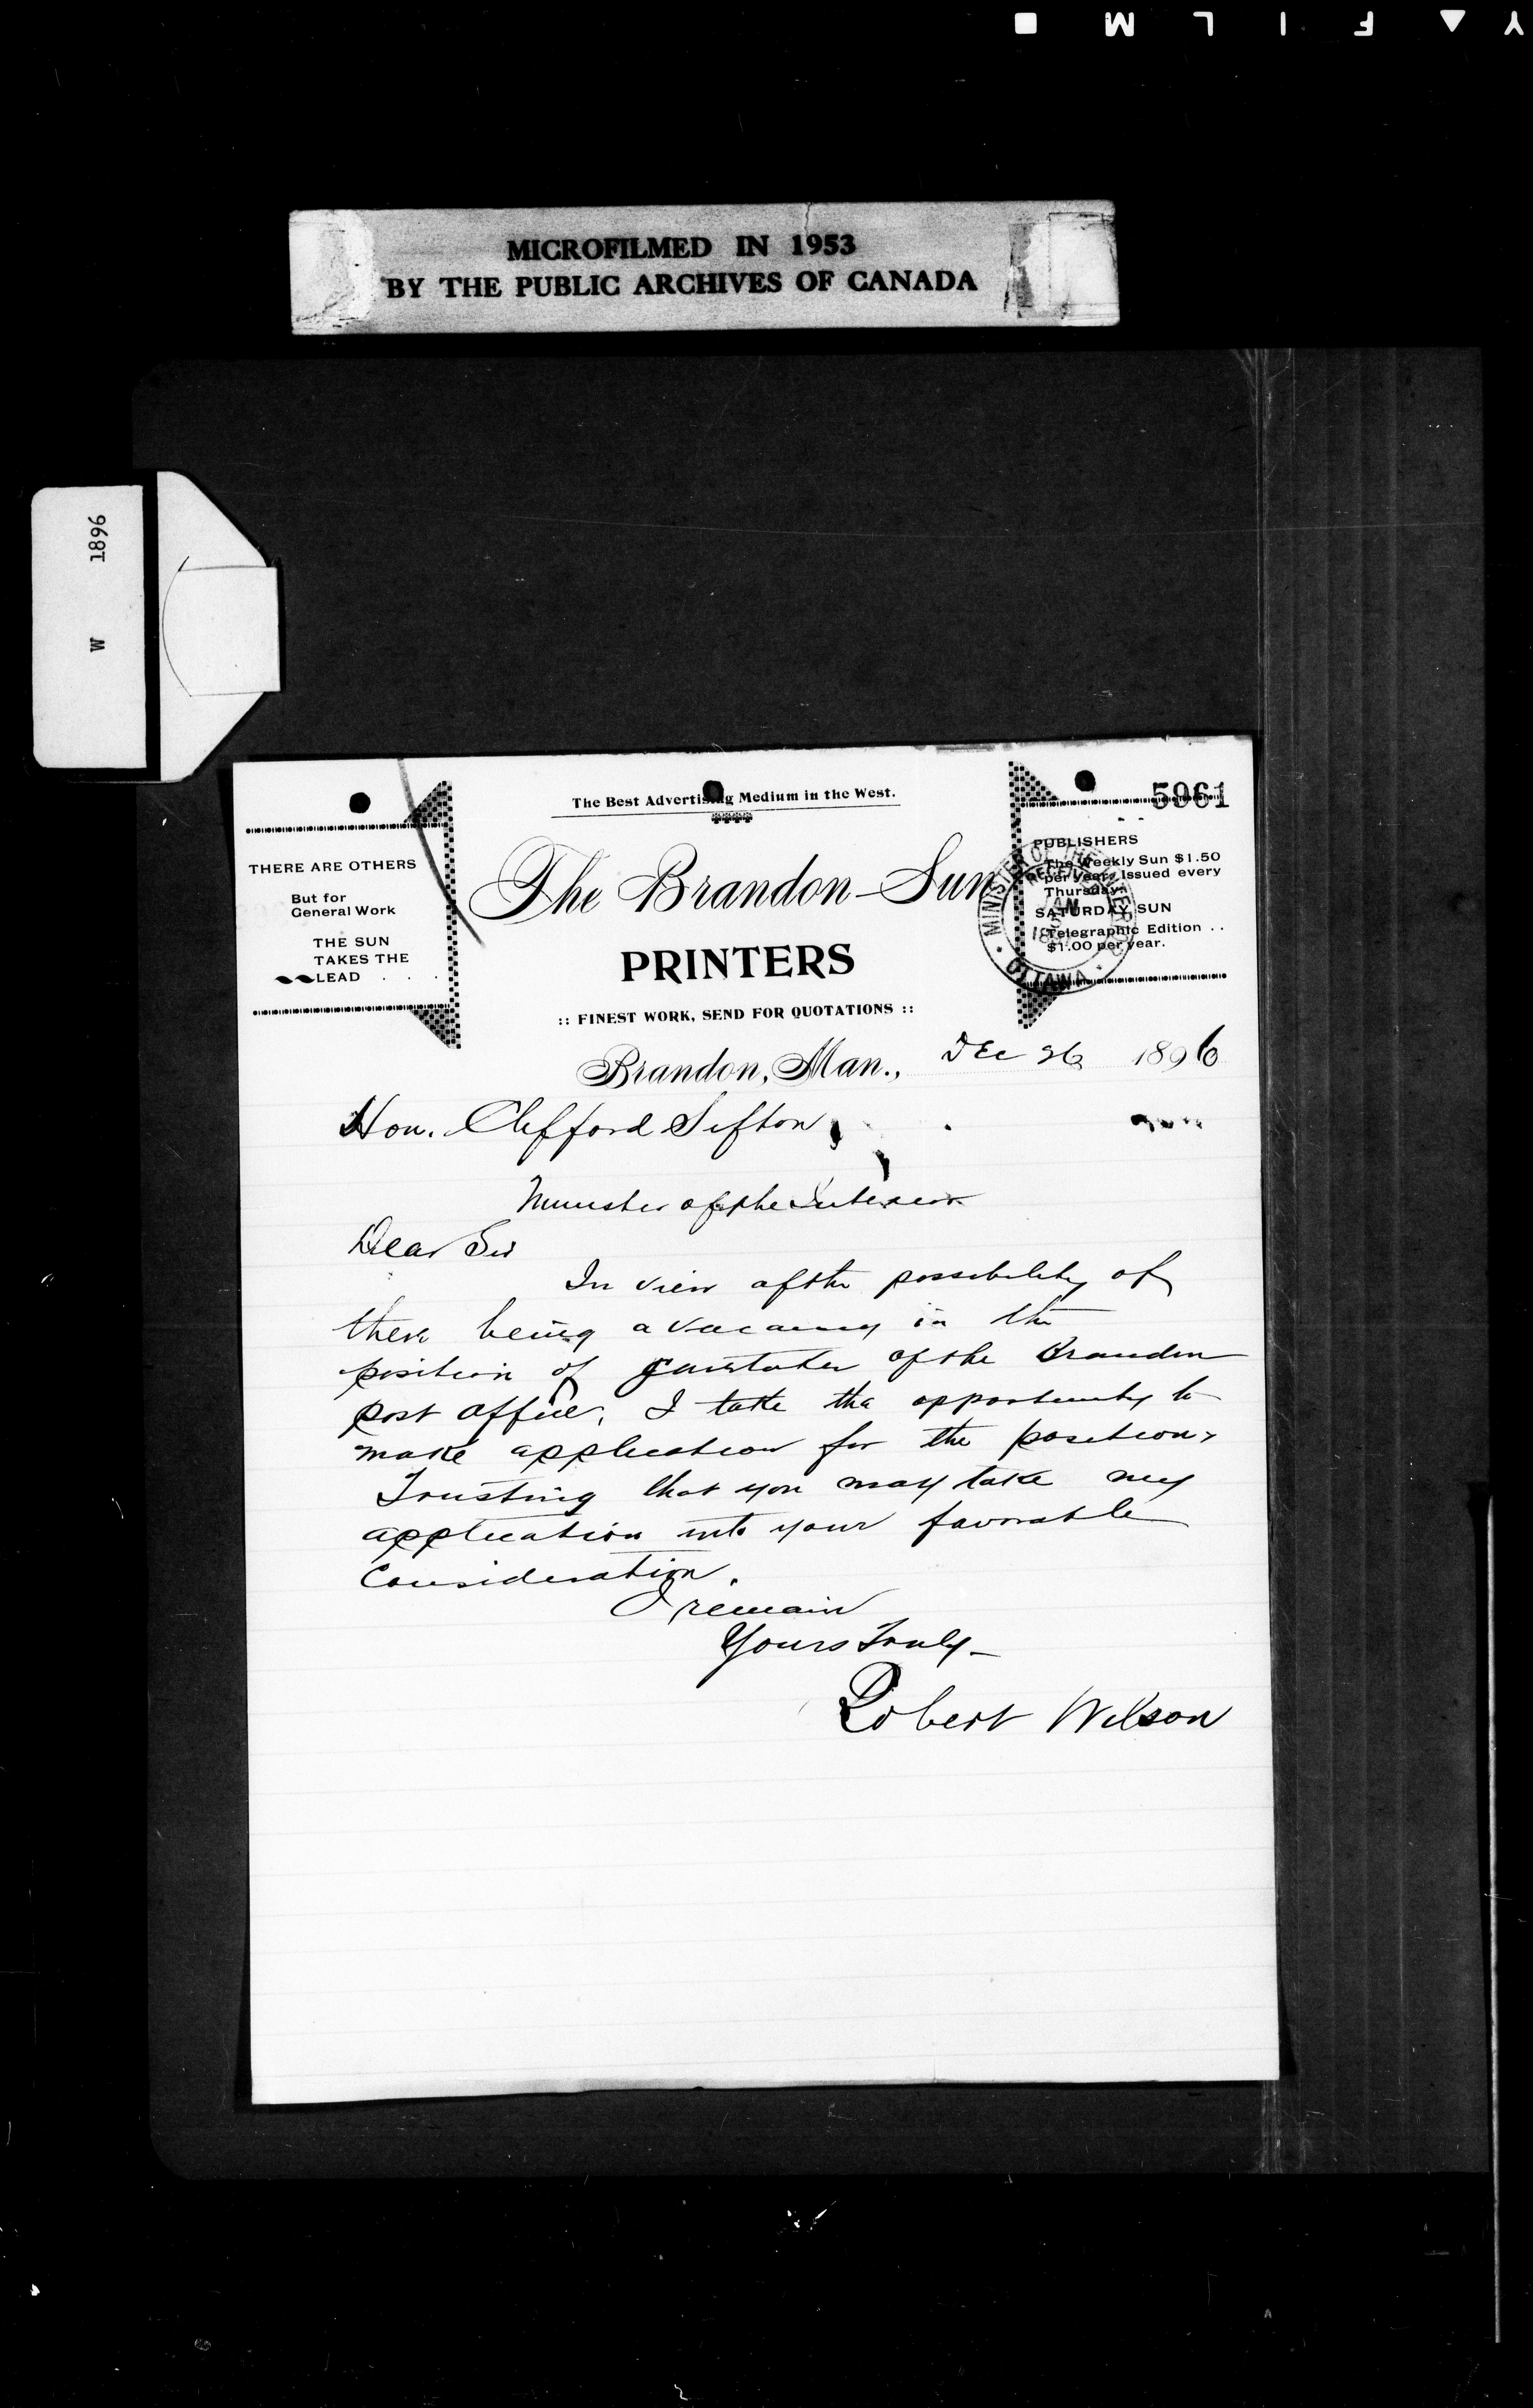 Y ▲ F I L M ■
MICROFILMED IN 1953
BY THE PUBLIC ARCHIVES OF CANADA
W 1896
5961
The Best Advertising Medium in the West.
THERE ARE OTHERS
But for
General Work
THE SUN
TAKES THE
LEAD . . .
The Brandon Sun
PRINTERS
:: FINEST WORK, SEND FOR QUOTATIONS ::
PUBLISHERS
The Weekly Sun $1.50
per year. Issued every
Thursday.
SATURDAY SUN
Telegraphic Edition . .
$1.00 per year.
MINISTER OF THE INTERIOR
RECEIVED
JAN
OTTAWA
Brandon, Man., Dec 26 1896
Hon. Clifford Sifton,
Minister of the Interior
Dear Sir
In view of the possibility of
there being a vacancy in the
position of caretaker of the Brandon
post office, I take the opportunity to
make application for the position.
Trusting that you may take my
application into your favorable
consideration.
I remain
Yours Truly
Robert Wilson